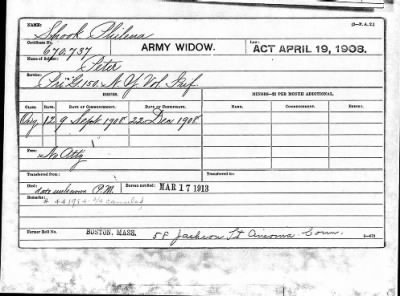 NAME: Shook Philena (3-F.A.2.)
Certificate No. 670,737 ARMY WIDOW. Law: ACT APRIL 19, 1908.
Name of Soldier: Peter
Service: Pri "G" 150. N.Y. Vol. Inf.
ISSUE. MINORS—$2 PER MONTH ADDITIONAL.
CLASS. RATE. DATE OF COMMENCEMENT. DATE OF CERTIFICATE. NAME. COMMENCEMENT. ENDING.
Orig 12 9 Sept 1908 22 Dec 1908
Fees: No Atty
Transferred from: Transferred to:
Died: date unknown P.M. Bureau notified: MAR 17 1913
Remarks: # 441954 canceled
Former Roll No. BOSTON, MASS. 58 Jackson St Ansonia Conn.